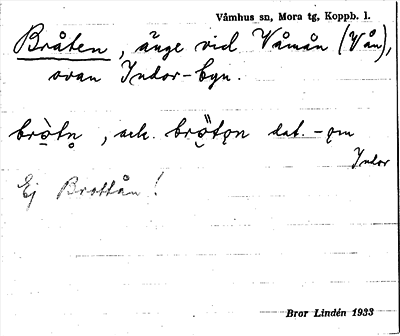 Våmhus sn, Mora tg, Koppb. l.
Bråten, änge vid Våmån (Vån),
ovan Indor-byn.
brò̤tn̥, ack. brö̤̀tǫn dat. -ǫm
Indor
Ej Brottån!
Bror Lindén 1933